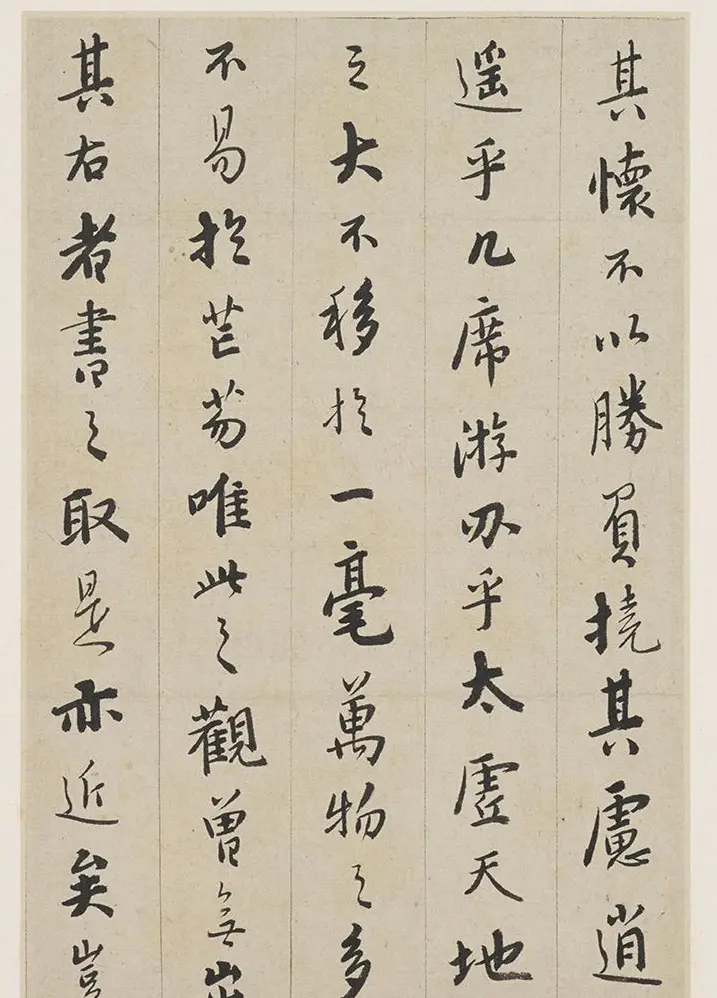 其懷不以勝負撓其慮逍
遥乎几席游刃乎太虛天地
之大不移於一毫萬物之多
不易於芒芴唯此之觀曾無
其右者書之取是亦近矣豈